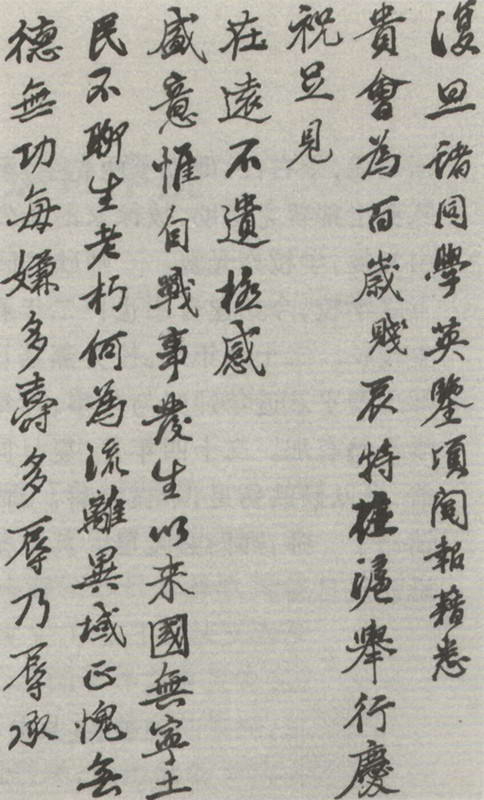 復旦諸同學英鑒頃閱報藉悉
貴會為百歲賤辰特在滬舉行慶
祝足見
在遠不遺極感
盛意惟自戰事發生以來國無寧土
民不聊生老朽何為流離異域正愧無
德無功每嫌多壽多辱乃辱承